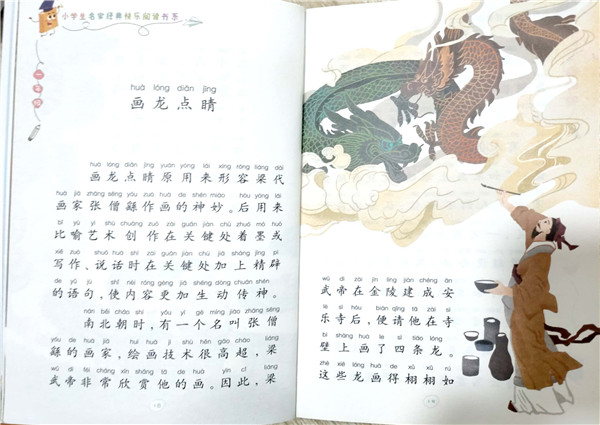 小学生名家经典快乐阅读书系
一年级
huà lóng diǎn jīng
画龙点睛
huà lóng diǎn jīng yuán yòng lái xíng róng liáng dài
画龙点睛原用来形容梁代
huà jiā zhāng sēng yóu zuò huà de shén miào hòu yòng lái
画家张僧繇作画的神妙。后用来
bǐ yù yì shù chuàng zuò zài guān jiàn chù zhuó mò huò
比喻艺术创作在关键处着墨或
xiě zuò shuō huà shí zài guān jiàn chù jiā shàng jīng pì
写作、说话时在关键处加上精辟
de yǔ jù shǐ nèi róng gèng jiā shēng dòng chuán shén
的语句,使内容更加生动传神。
nán běi cháo shí yǒu yí gè míng jiào zhāng sēng
南北朝时,有一个名叫张僧
yóu de huà jiā huì huà jì shù hěn gāo chāo liáng
繇的画家,绘画技术很高超,梁
wǔ dì fēi cháng xīn shǎng tā de huà yīn cǐ liáng
武帝非常欣赏他的画。因此,梁
wǔ dì zài jīn líng jiàn chéng ān
武帝在金陵建成安
lè sì hòu biàn qǐng tā zài sì
乐寺后,便请他在寺
bì shàng huà le sì tiáo lóng
壁上画了四条龙。
zhè xiē lóng huà de xǔ xǔ rú
这些龙画得栩栩如